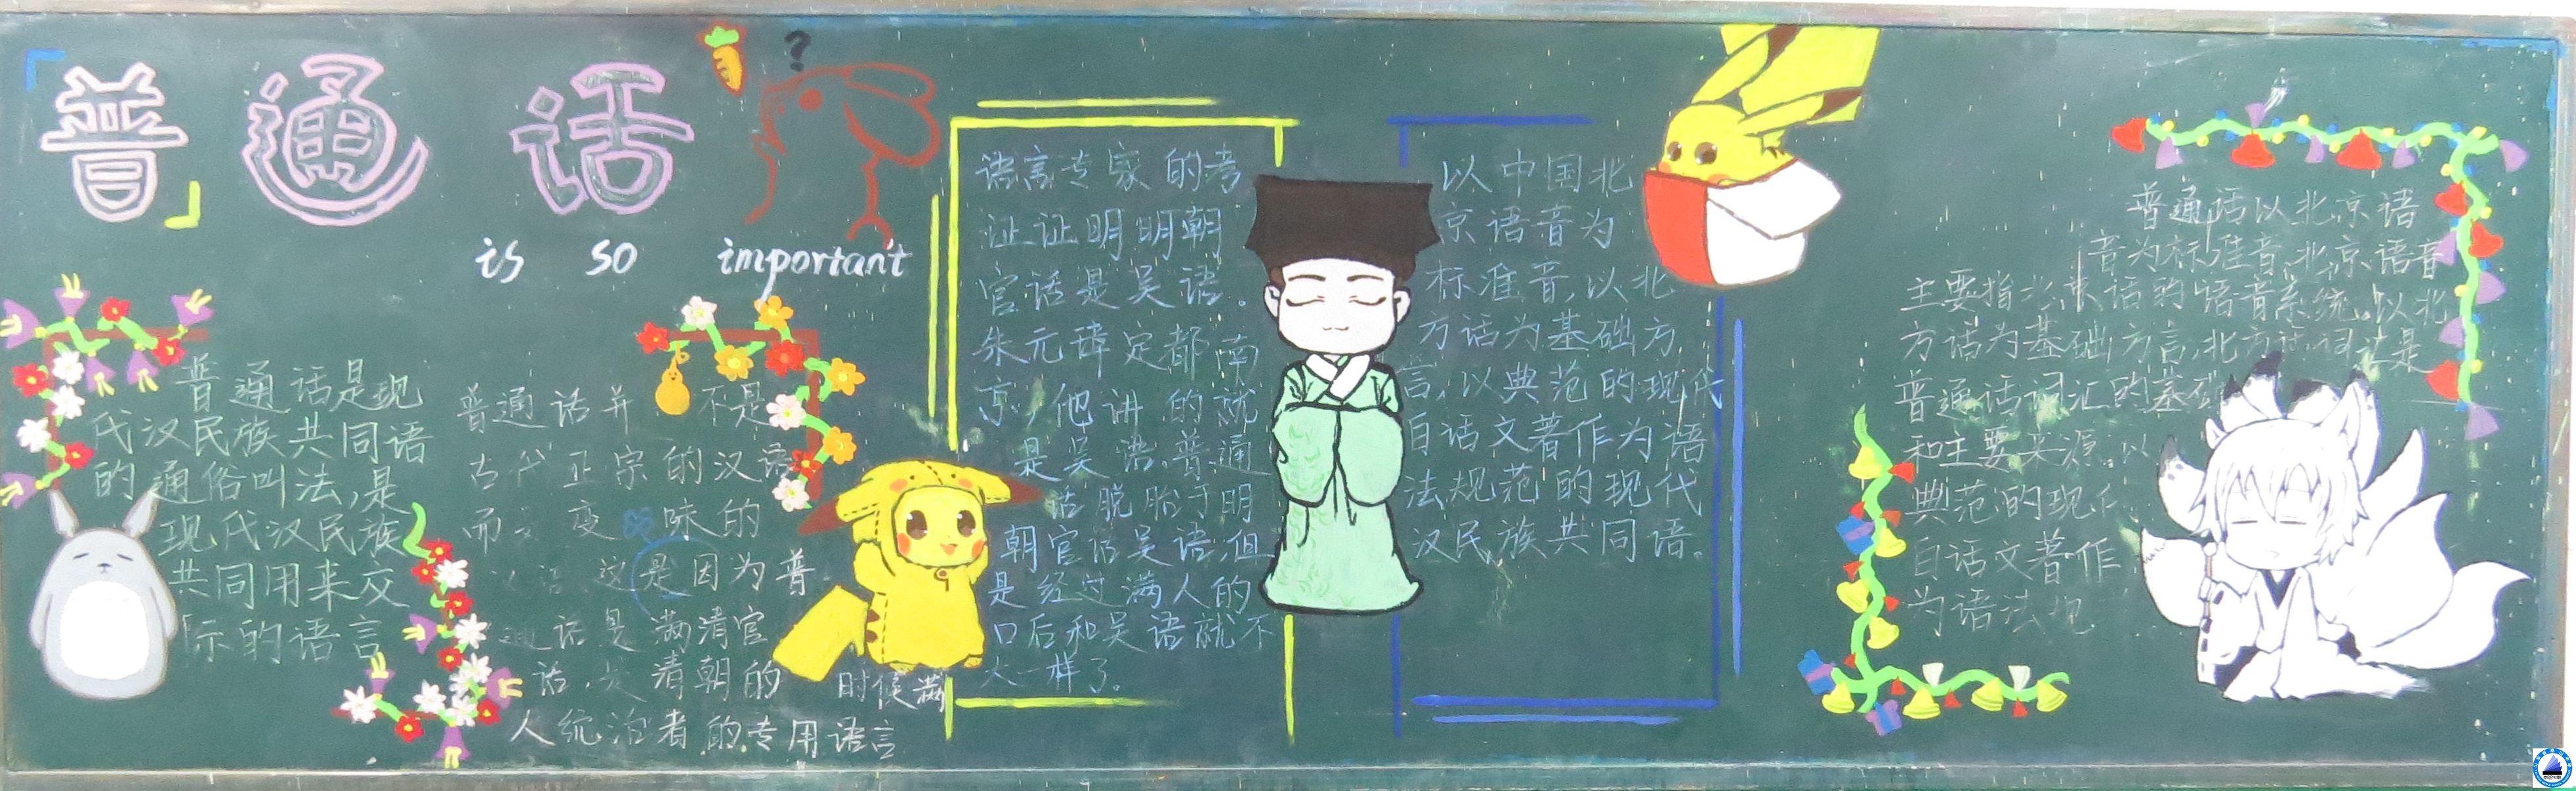 普通话
is so important
普通话是现
代汉民族共同语
的通俗叫法,是
现代汉民族
共同用来交
际的语言
普通话并不是
古代正宗的汉语
而 变味的
这是因为普
通话是满清官
话,是清朝的时候满
人统治者的专用语言
语言专家的考
证证明明朝
官话是吴语。
朱元璋定都南
京,他讲的就
是吴语,普通
话脱胎于明
朝官话吴语,但
是经过满人的
口后和吴语就不
大一样了。
以中国北
京语音为
标准音,以北
方话为基础方
言,以典范的现代
白话文著作为语
法规范的现代
汉民族共同语。
普通话以北京语
音为标准音,北京语音
主要指北京话的语音系统。以北
方话为基础方言,北方话词汇是
普通话词汇的基础
和主要来源,以
典范的现代
白话文著作
为语法规